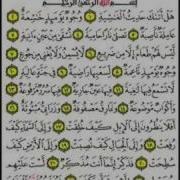 بسم الله الرحمن الرحيم
هَلْ أَتَىٰكَ حَدِيثُ ٱلْغَٰشِيَةِ ١
وُجُوهٌ يَوْمَئِذٍ خَٰشِعَةٌ ٢
عَامِلَةٌ نَّاصِبَةٌ ٣ تَصْلَىٰ نَارًا حَامِيَةً ٤ تُسْقَىٰ مِنْ عَيْنٍ ءَانِيَةٍ ٥
لَّيْسَ لَهُمْ طَعَامٌ إِلَّا مِن ضَرِيعٍ ٦ لَّا يُسْمِنُ وَلَا يُغْنِى مِن جُوعٍ
٧ وُجُوهٌ يَوْمَئِذٍ نَّاعِمَةٌ ٨ لِّسَعْيِهَا رَاضِيَةٌ ٩ فِى جَنَّةٍ عَالِيَةٍ
١٠ لَّا تَسْمَعُ فِيهَا لَٰغِيَةً ١١ فِيهَا عَيْنٌ جَارِيَةٌ ١٢ فِيهَا سُرُرٌ مَّرْفُوعَةٌ
١٣ وَأَكْوَابٌ مَّوْضُوعَةٌ ١٤ وَنَمَارِقُ مَصْفُوفَةٌ ١٥ وَزَرَابِىُّ مَبْثُوثَةٌ
١٦ أَفَلَا يَنظُرُونَ إِلَى ٱلْإِبِلِ كَيْفَ خُلِقَتْ ١٧ وَإِلَى ٱلسَّمَآءِ كَيْفَ
رُفِعَتْ ١٨ وَإِلَى ٱلْجِبَالِ كَيْفَ نُصِبَتْ ١٩ وَإِلَى ٱلْأَرْضِ كَيْفَ
سُطِحَتْ ٢٠ فَذَكِّرْ إِنَّمَآ أَنتَ مُذَكِّرٌ ٢١ لَّسْتَ عَلَيْهِم